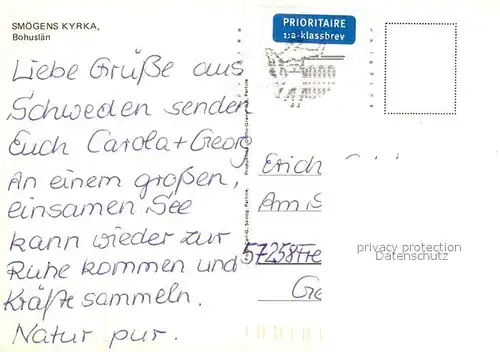 SMÖGENS KYRKA,
Bohuslän
PRIORITAIRE
1:a-klassbrev
Liebe Grüße aus
Schweden senden
Euch Carola + Georg
An einem großen,
einsamen See
kann wieder zur
Ruhe kommen und
Kräfte sammeln.
Natur pur.
Erich
Am
57258 Fre
Ge
privacy protection
Datenschutz